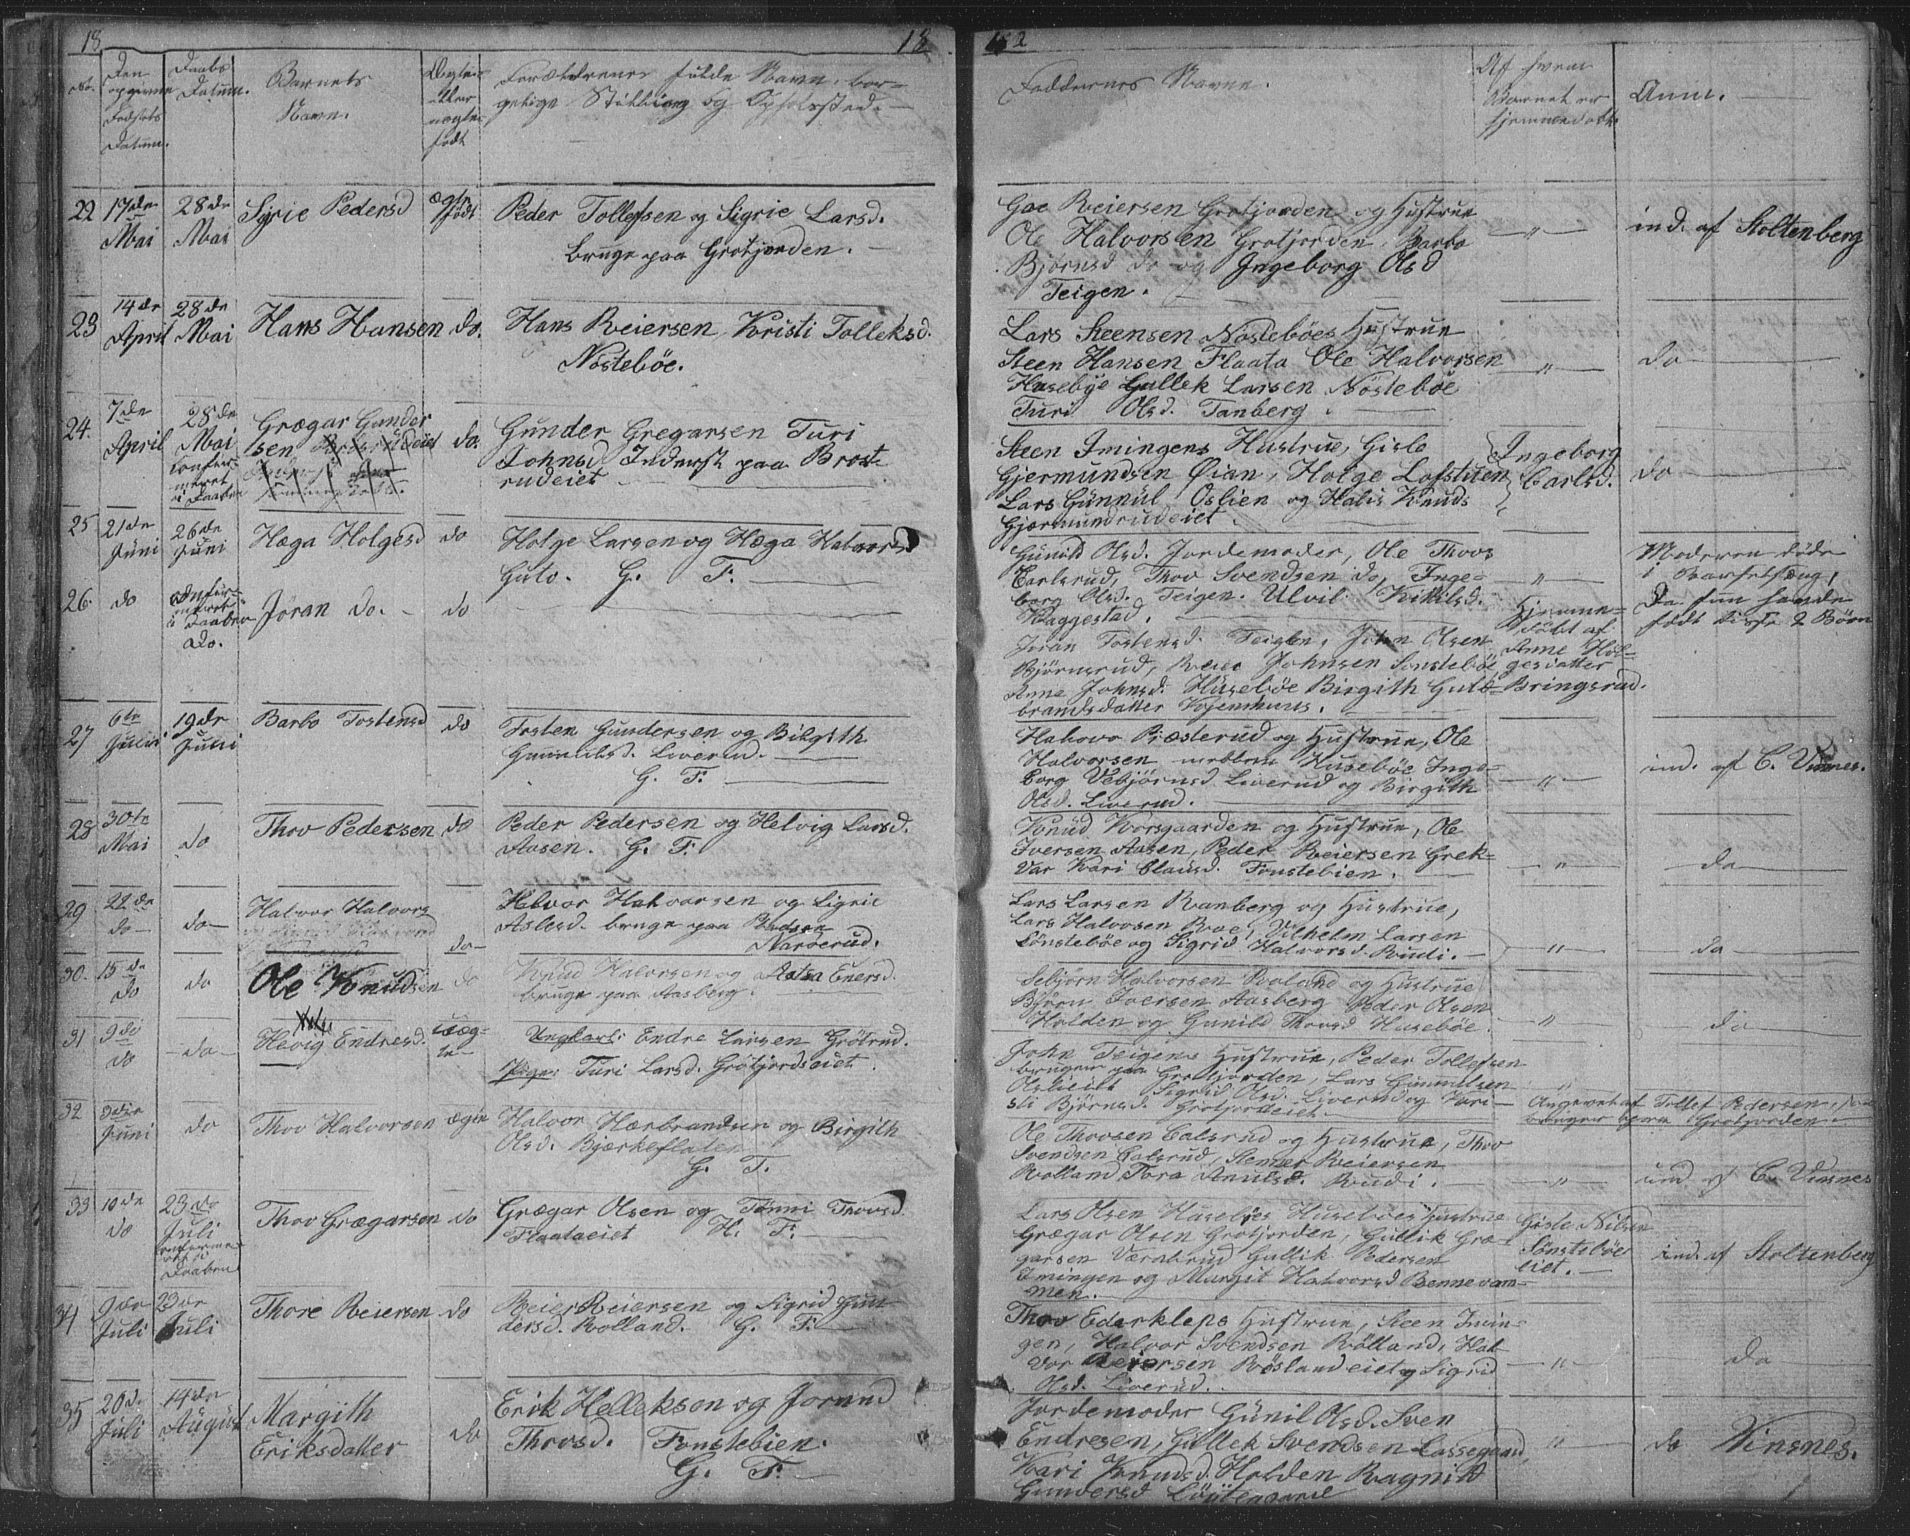 18 18 182
No.
Den
opgivne
Fødsels
Datum.
Daabs
Datum.
Barnets
Navn.
Ægte
eller
uægte
født
Forældrenes fulde Navn, bor-
gerlige Stilling og Opholdssted.
Faddernes Navne.
Af hvem
Barnet er
hjemmedøbt.
Anm.
22 17de Mai 28de Mai
Sigrie Pedersd
ægte født
Peder Tollefsen og Sigrie Larsd.
bruge paa Grøtjorden.
Reiersen Grotjorden og Hustrue
Ole Halvorsen Grotjorden, Barbo
Bjørnsd do og Ingeborg Olsd
Teigen.
"
ind. af Stoltenberg
23 14de April 28de Mai
Hans Hansen do.
Hans Reiersen, Kristi Tolleksd.
Nøstebøe.
Lars Steensen Nøstebøes Hustrue
Steen Hansen Flaata Ole Halvorsen
Husebye Gullek Larsen Nøstebøe
Turi Olsd. Tanberg.
"
do
24. 7de April 28de Mai
confir-
meret
i Daaben
Grægar Gunder
sen
do.
Gunder Gregarsen Turi
Johnsd Inderst paa Brat-
rudeiet
Steen Imingens Hustrue, Gisle
Gjermundsen Øian, Holge Lofstuen
Lars Gunnul. Oslien og Halis Knuds
Gjærmundrudeiet.
Ingeborg
Carlsd.
do
25 21de Juni 26de Juni
Hæga Holgesd do
Holge Larsen og Hæga Halvorsd
Gulo. G. F.
Gunild Olsd. Jordemoder, Ole Thovs
Carlsrud, Thov Svendsen do, Inge-
borg Olsd. Teigen. Ulvil Kittilsd.
Haggestad.
"
Moderen døde
i Barselseng,
Da hun havde
født disse 2 Børn
26. do
confir-
meret
i Daaben
Do.
Jøran do. do
Joran Tostensd. Teigen, John Olsen
Bjørnsrud, Reier Johnsen Sønstebøe
Anne Johnsd. Husebøe Birgith Guld-
brandsdatter Kojemhuus.
Hjemme-
døbt af
Anne Hol-
gesdatter
Bringsrud.
27 6te Juni 19de Juni
Barbo Tostensd do
Tosten Gundersen og Birgith
Gunnildsd. Liverud.
G. F.
Halvor Præsterud og Hustrue, Ole
Halvorsen mebbens Husebøe Inge-
borg Vebjørnsd Liverud og Birgith
Olsd. Liverud.
"
ind. af C. Vinsnes.
28 30te Mai do
Thov Pedersen do
Peder Pedersen og Helvig Larsd.
Aasen. G. F.
Knud Korsgaarden og Hustrue, Ole
Iversen Aasen, Peder Reiersen Grek-
Var Kari Clausd. Fonstebien.
"
do
29 22de do do
Halvor Halvors
do
Halvor Halvorsen og Sigrie
Aslesd. bruge paa
Narverud.
Lars Larsen Ranberg og Hustrue,
Lars Halvorsen Roe, Vilhelm Larsen
Sønstebøe og Sigrid Halvorsd. Rudi.
"
do
30. 15de do do
Ole Knudsen do
Knud Halvorsen og Aasa Enersd.
bruge paa Aasberg.
Sebjørn Halvorsen Roland og Hustrue
Bjørn Iversen Aasberg Peder Olsen
Holden og Gunild Thovsd Husebøe.
"
do
31 9de do do
Helvig Endresd. uæg-
te
Ungkarl: Endre Larsen Grotrud.
Pige: Turi Larsd. Grotjordseiet.
John Teigens Hustrue, Peder Tollefsen
bruger paa Grotjorden, Lars Gunnulsen
Oslieiet Sigrid Olsd. Liverud og Kari
sti Bjørnsd. Grotjordeiet
"
Angivet af Tollef Pedersen, som
bruger paa Grotjorden
32 Juni do
Thov Halvorsen ægte
Halvor Hærbrandsen og Birgith
Olsd. Bjørkeflaten
G. F.
Ole Thovsen Calsrud og Hustrue, Thov
Svendsen Calsrud, Stener Reiersen
Rolland Tora Amulsd. Rudi.
"
ind af C. Vinsnes
33 10de do 23de Juli
confirme-
ret i
Daaben
Thov Grægarsen do
Grægar Olsen og Tønni Thovsd.
Flaataeiet H. F.
Lars Olsen Husebøes Husebøes Hustrue
Grægar Olsen Grotjorden, Gullik Græ-
garsen Værnbrud Gullik Pedersen
Imingen og Margit Halvorsd Bennevam-
men.
Gisle Nilsen
Sønstebøe
eiet.
ind. af Stoltenberg
34 9de Juli 23de Juli
Thore Reiersen do
Reier Reiersen og Sigrid Gun-
dersd. Rolland. G. F.
Thov Ederkleps Hustrue, Steen Imin-
gen, Halvor Svendsen Rolland, Hal
vor Reiersen Røslandeiet og Sigrid
Olsd. Liverud.
"
do
35 20de Juli 14de August
Margith
Eriksdatter
do
Erik Helleksen og Jorand
Thovsd. Fonstebien.
G. F.
Jordemoder Gunil Olsd. Sven
Endresen, Gullek Svendsen Lassegaard,
Kari Knudsd. Holden Ragnild
Gundersd
"
do Vinsnes.